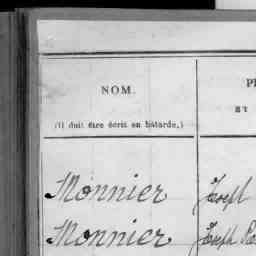 NOM.
(Il doit être écrit en bâtarde.)
ET
Monnier Joseph
Monnier Joseph